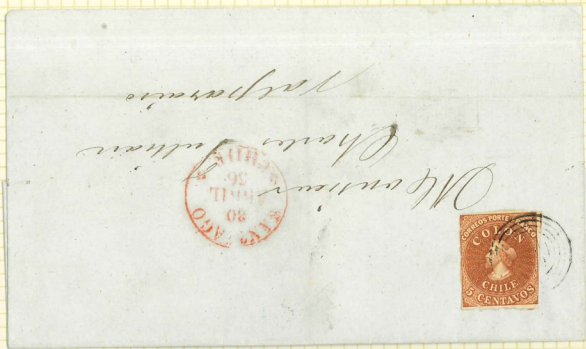 Monsieur
Charles
Valparaiso
SANTIAGO
20
56
CHILE
CORREOS PORTE FRANCO
COLON
CHILE
5 CENTAVOS